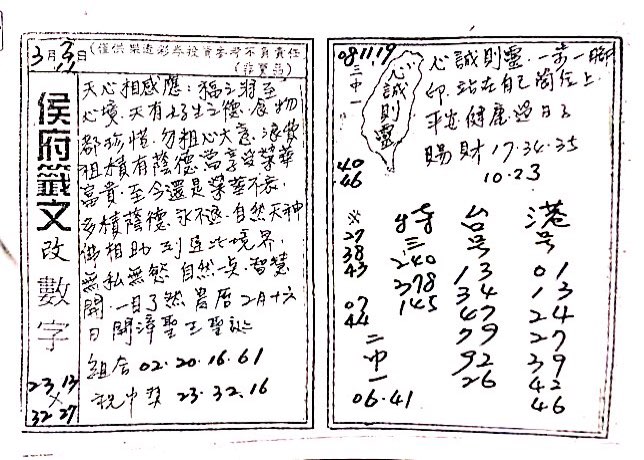 3月
日
(僅供樂透彩券投資參考不負責任
(非賣品)
侯府籤文改數字
23 13
×
32 27
天心相感應. 福之將至
心境. 天有好生之德. 食物
都珍惜. 勿粗心大意. 浪費
祖積有蔭德. 當享受榮華
富貴. 至今還是榮華不衰.
多積蔭德. 永不退. 自然天神
佛相助. 到達此境界.
無私無慾. 自然一点. 智慧
開. 一目了然. 農曆2月十六
日開漳聖王聖誕
組合 02.20.16.61
祝中獎 23.32.16
08 11 19
二中一
40
46
心誠則靈
心誠則靈. 一步一腳
印. 站在自己崗位上
平安健康過日子
賜財 17.34.35
10.23
※
27
38
43
07
44
二中一
06.41
特三
240
378
145
台号
13
34
47
79
92
26
港号
01
13
24
27
39
42
46